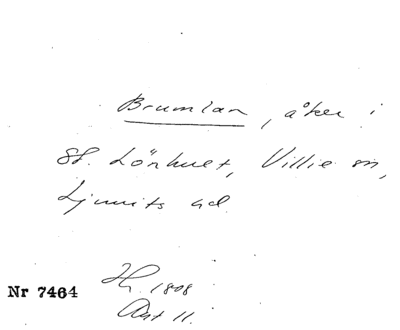 Brumlan, åker i
St. Lönhult, Villie sn,
Ljunits hd.
H. 1808
Nr 7464
Akt 11.